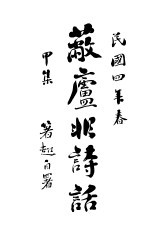 民國四年春
蔽廬非詩話
甲集
著超自署